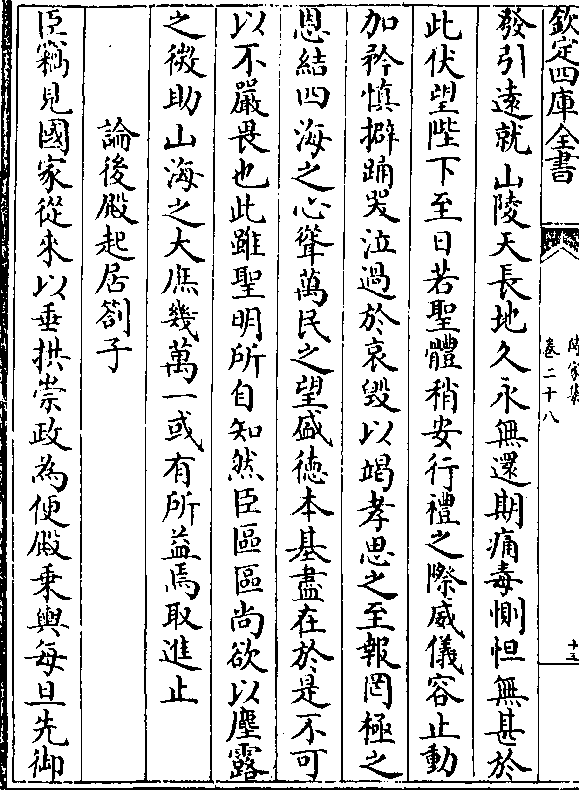 欽定四庫全書
卷二十八
發引遠就山陵天長地久永無還期痛毒惻怛無甚於
此伏望陛下至日若聖體稍安行禮之際威儀容止動
加矜慎擗踊哭泣過於哀毀以竭孝思之至報罔極之
恩結四海之心聳萬民之望盛德本基盡在於是不可
以不嚴畏也此雖聖明所自知然臣區區尚欲以塵露
之微助山海之大庶幾萬一或有所益焉取進止
論後殿起居劄子
臣竊見國家從來以垂拱崇政為便殿乘輿每旦先御